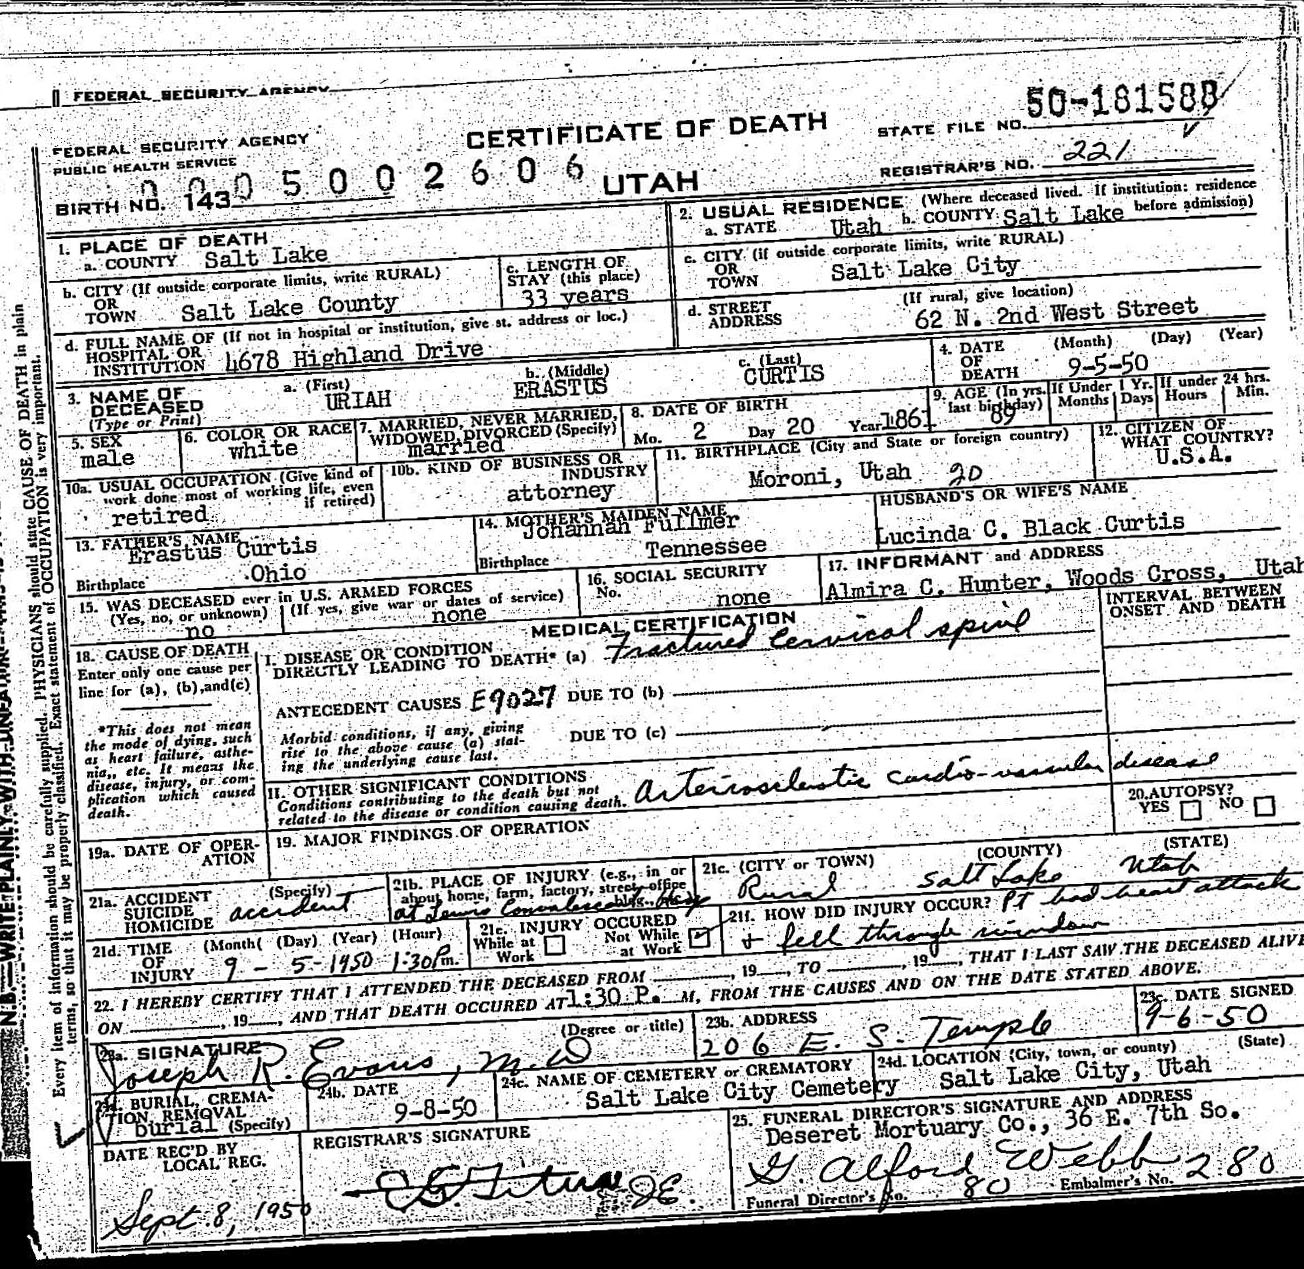 FEDERAL SECURITY AGENCY
50-181588
FEDERAL SECURITY AGENCY
PUBLIC HEALTH SERVICE
CERTIFICATE OF DEATH
STATE FILE NO.
REGISTRAR'S NO. 221
0005002606
BIRTH NO. 143
UTAH
1. PLACE OF DEATH
a. COUNTY Salt Lake
2. USUAL RESIDENCE (Where deceased lived. If institution: residence before admission)
a. STATE Utah b. COUNTY Salt Lake
b. CITY (If outside corporate limits, write RURAL)
OR
TOWN Salt Lake County
c. LENGTH OF
STAY (this place)
33 years
c. CITY (if outside corporate limits, write RURAL)
OR
TOWN Salt Lake City
d. FULL NAME OF (If not in hospital or institution, give st. address or loc.)
HOSPITAL OR
INSTITUTION 4678 Highland Drive
d. STREET
ADDRESS
(If rural, give location)
62 N. 2nd West Street
3. NAME OF
DECEASED
(Type or Print)
a. (First)
URIAH
b. (Middle)
ERASTUS
c. (Last)
CURTIS
4. DATE
OF
DEATH
(Month) (Day) (Year)
9-5-50
5. SEX
male
6. COLOR OR RACE
white
7. MARRIED, NEVER MARRIED,
WIDOWED, DIVORCED (Specify)
married
8. DATE OF BIRTH
Mo. 2 Day 20 Year 1861
9. AGE (In yrs.
last birthday)
89
If Under 1 Yr.
Months Days
If under 24 hrs.
Hours Min.
10a. USUAL OCCUPATION (Give kind of
work done most of working life, even
if retired)
retired
10b. KIND OF BUSINESS OR
INDUSTRY
attorney
11. BIRTHPLACE (City and State or foreign country)
Moroni, Utah 20
12. CITIZEN OF
WHAT COUNTRY?
U.S.A.
13. FATHER'S NAME
Erastus Curtis
Birthplace Ohio
14. MOTHER'S MAIDEN NAME
Johannah Fullmer
Birthplace Tennessee
HUSBAND'S OR WIFE'S NAME
Lucinda C. Black Curtis
15. WAS DECEASED ever in U.S. ARMED FORCES
(Yes, no, or unknown) (If yes, give war or dates of service)
no none
16. SOCIAL SECURITY
No. none
17. INFORMANT and ADDRESS
Almira C. Hunter, Woods Cross, Utah
MEDICAL CERTIFICATION
INTERVAL BETWEEN
ONSET AND DEATH
18. CAUSE OF DEATH
Enter only one cause per
line for (a), (b), and (c)
I. DISEASE OR CONDITION
DIRECTLY LEADING TO DEATH* (a) Fractured Cervical spine
ANTECEDENT CAUSES E9027 DUE TO (b)
Morbid conditions, if any, giving
rise to the above cause (a) stat-
ing the underlying cause last.
DUE TO (c)
*This does not mean
the mode of dying, such
as heart failure, asthe-
nia, etc. It means the
disease, injury, or com-
plication which caused
death.
II. OTHER SIGNIFICANT CONDITIONS
Conditions contributing to the death but not
related to the disease or condition causing death.
Arteriosclerotic cardio-vascular disease
20. AUTOPSY?
YES NO
19a. DATE OF OPER-
ATION
19. MAJOR FINDINGS OF OPERATION
21a. ACCIDENT
SUICIDE
HOMICIDE
(Specify)
accident
21b. PLACE OF INJURY (e.g., in or
about home, farm, factory, street, office
bldg.,
at
21c. (CITY or TOWN) (COUNTY) (STATE)
Rural Salt Lake Utah
21d. TIME
OF
INJURY
(Month) (Day) (Year) (Hour)
9 - 5-1950 1:30 Pm.
21e. INJURY OCCURED
While at
Work
Not While
at Work
21f. HOW DID INJURY OCCUR? Pt had heart attack
+ fell through window
22. I HEREBY CERTIFY THAT I ATTENDED THE DECEASED FROM , 19 , TO , 19 , THAT I LAST SAW THE DECEASED ALIVE
ON , 19 , AND THAT DEATH OCCURED AT 1:30 P. M, FROM THE CAUSES AND ON THE DATE STATED ABOVE.
23a. SIGNATURE (Degree or title)
Joseph R. Evans, M.D
23b. ADDRESS
206 E. S. Temple
23c. DATE SIGNED
9-6-50
BURIAL, CREMA-
TION REMOVAL
burial (Specify)
24b. DATE
9-8-50
24c. NAME OF CEMETERY or CREMATORY
Salt Lake City Cemetery
24d. LOCATION (City, town, or county) (State)
Salt Lake City, Utah
DATE REC'D BY
LOCAL REG.
Sept. 8, 1950
REGISTRAR'S SIGNATURE
25. FUNERAL DIRECTOR'S SIGNATURE AND ADDRESS
Deseret Mortuary Co., 36 E. 7th So.
G. Alford Webb 280
Funeral Director's No. 80 Embalmer's No.
N.B.—WRITE PLAINLY WITH
Every item of information should be carefully supplied. PHYSICIANS should state CAUSE OF DEATH in plain
terms, so that it may be properly classified. Exact statement of OCCUPATION is very important.